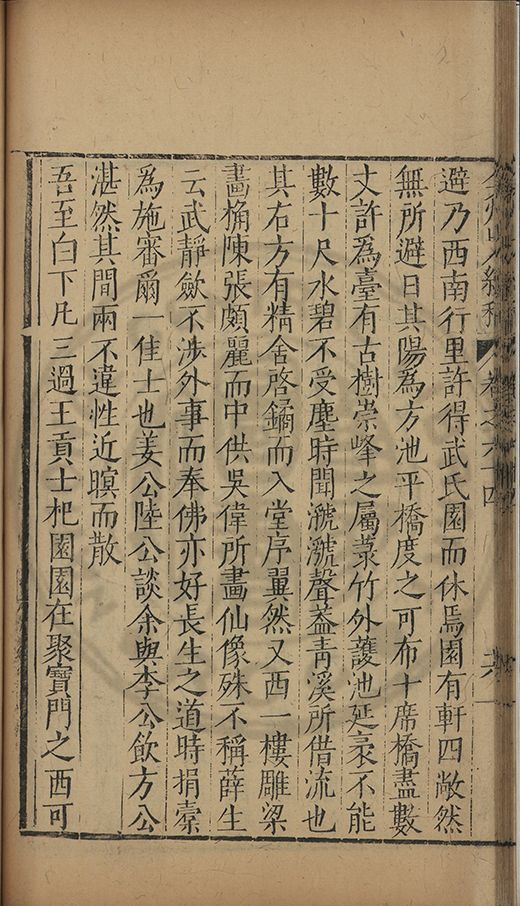 弇州山人續稿 卷之六十四 六
遊乃西南行里許得武氏園而休焉園有軒四敞然
無所避日其陽為方池平橋度之可布十席橋盡數
丈許為臺有古樹崇峰之屬䕺竹外䕶池延袤不能
數十尺水碧不受塵時聞㶁㶁聲葢青溪所借流也
其右方有精舍啓鐍而入堂序翼然又西一樓雕梁
畵桷陳張頗麗而中供吳偉所畵仙像殊不稱薛生
云武靜歛不涉外事而奉佛亦好長生之道時捐槖
為施審爾一佳士也姜公陸公談余與李公飲方公
湛然其間兩不違性近暝而散
吾至白下凡三過王貢士杞園園在聚寶門之西可